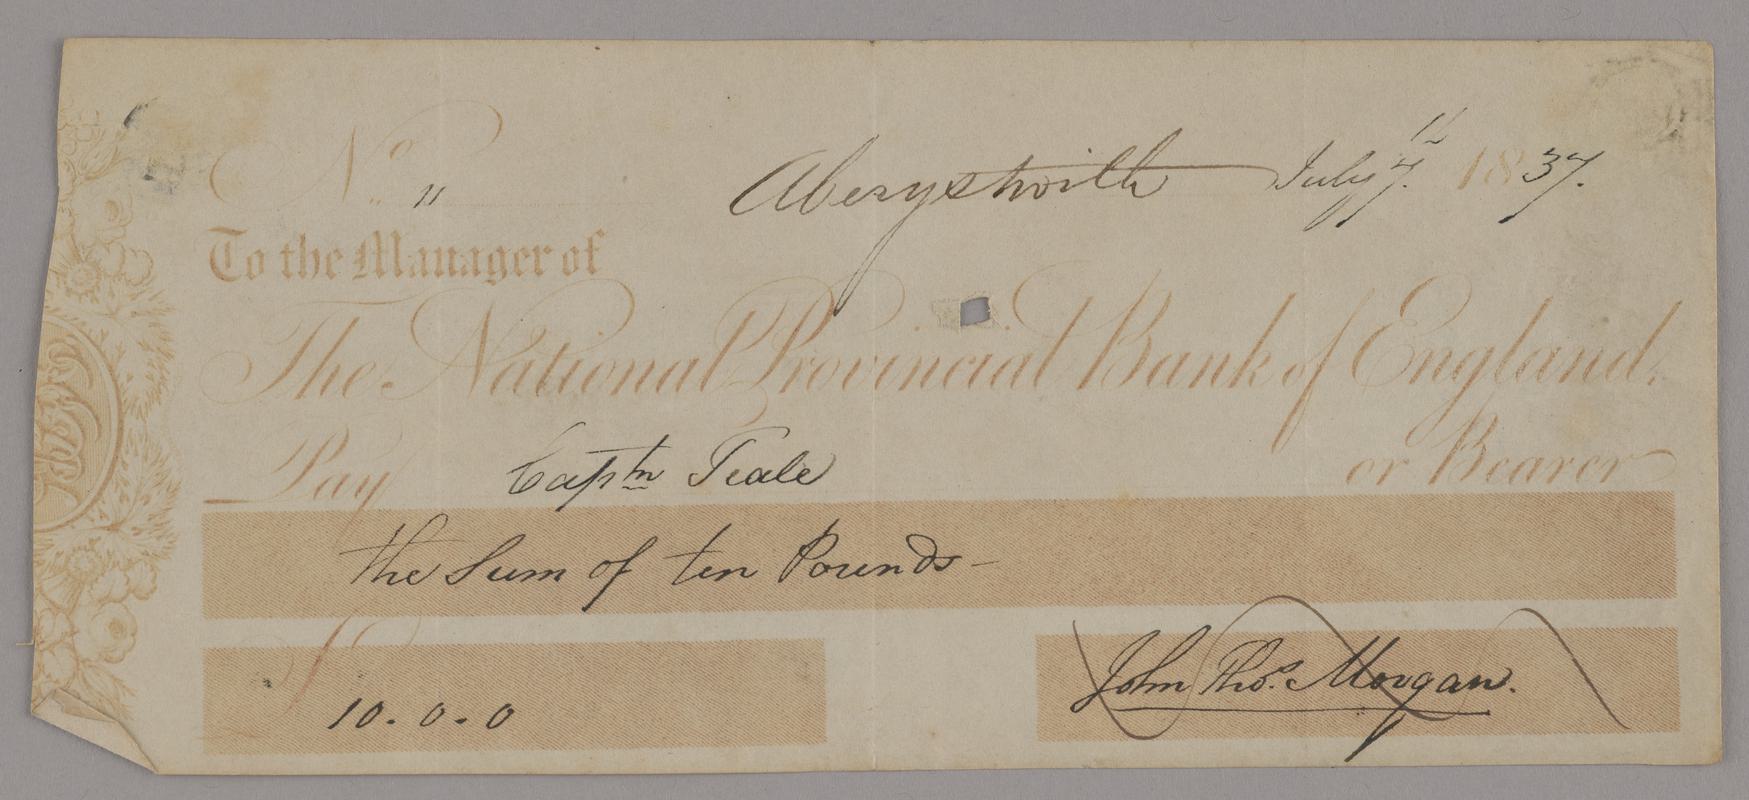 No. 11 Aberystwith July 7th 1837.
To the Manager of
The National Provincial Bank of England.
Pay Captn Teale or Bearer
the Sum of ten Pounds—
£10.0.0 John Thos. Morgan.